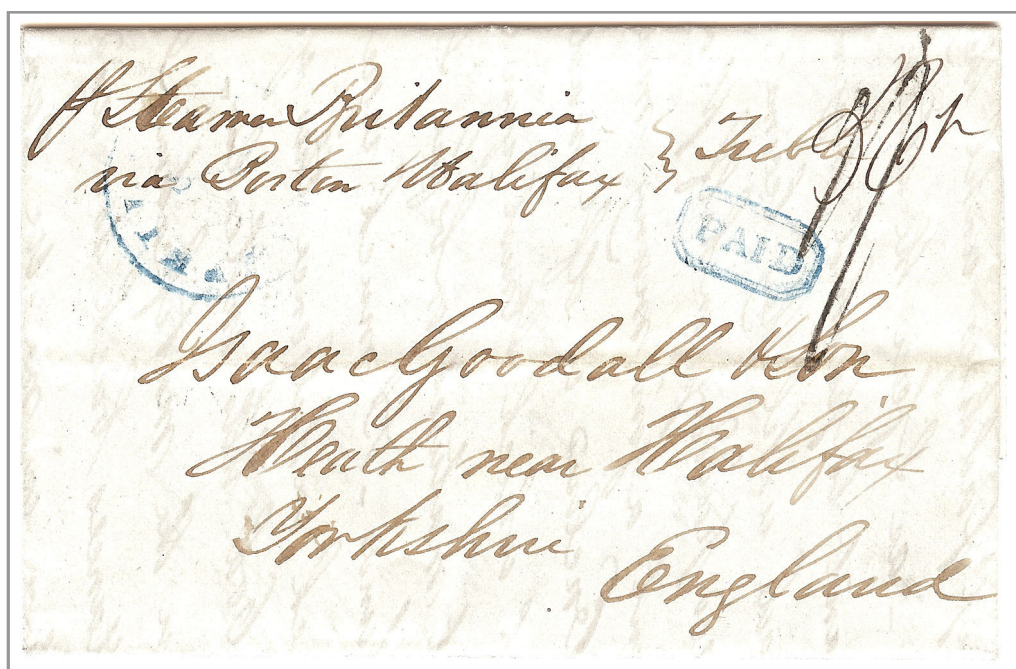 pr Steamer Britannia
via Boston Halifax } Treble
PAID
Isaac Goodall & Son
Heath near Halifax
Yorkshire
England